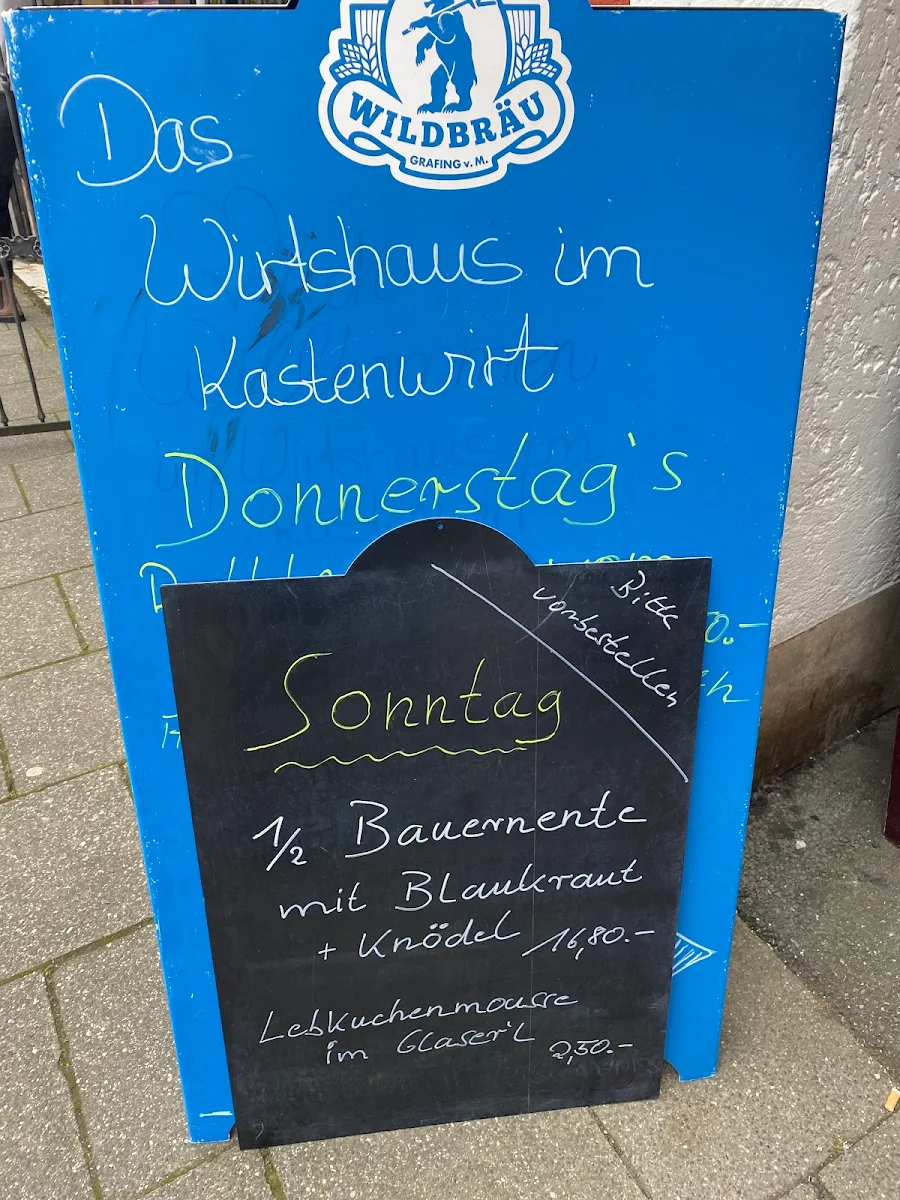 WILDBRÄU
GRAFING v. M.
Das
Wirtshaus im
Kastenwirt
Donnerstag's
Bitte
vorbestellen
Sonntag
1/2 Bauernente
mit Blaukraut
+ Knödel 16,80.-
Lebkuchenmousse
im Glaser'l 2,50.-